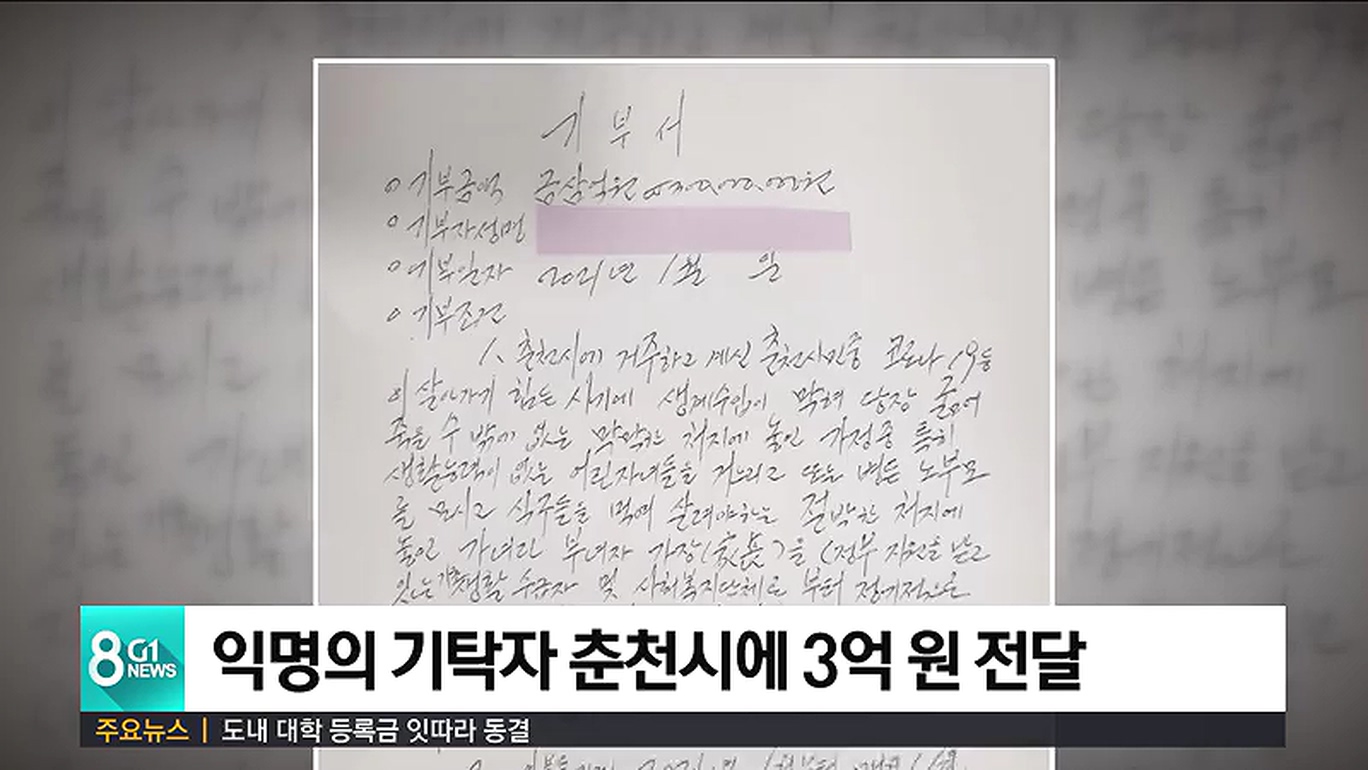 기부서
○ 기부금액 금삼억원
○ 기부자성명
○ 기부일자 2021년 1월 일
○ 기부조건
1. 춘천시에 거주하고 계신 춘천시민중 코로나19등
의 살아가기 힘든 시기에 생계수입이 막혀 당장 굶어
죽을 수 밖에 없는 막막한 처지에 놓인 가정중 특히
생활능력이 없는 어린자녀들을 거느리고 또는 병든 노부모
를 모시고 식구들을 먹여 살려야하는 절박한 처지에
놓인 가녀린 부녀자 가장(家長)을 (정부 지원을 받고
있는 생활 수급자 및 사회복지단체로 부터 정기적으로
8 G1 NEWS
익명의 기탁자 춘천시에 3억 원 전달
주요뉴스 | 도내 대학 등록금 잇따라 동결